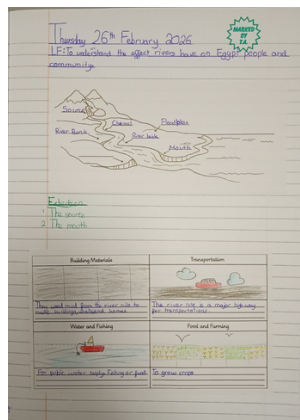 Thursday 26th February 2026
MARKED BY T.A.
LF: To understand the effect rivers have on Egypt people and
community.
Source
Channel
Floodplain
River Bank
River bank
Mouth
Extension
1. The source
2. The mouth
Building Materials
Transportation
They used mud from the river nile to
make buildings, and homes.
The river nile is a major highway
for transportations.
Water and Fishing
Food and Farming
For public water supply. Fishing or food
To grow crops